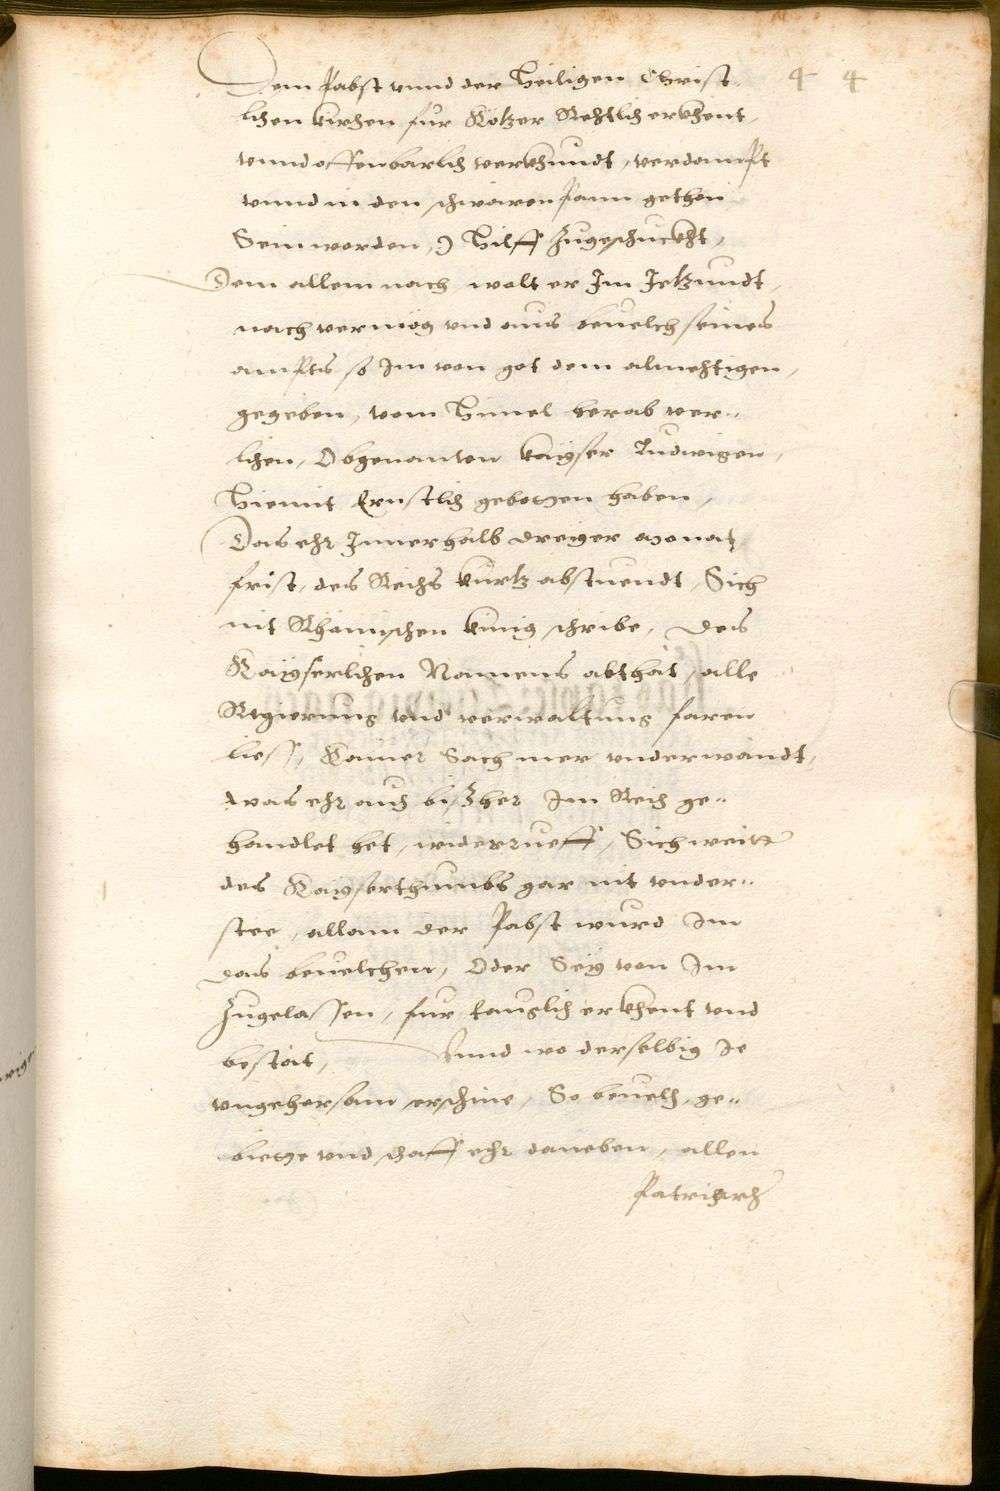 4 4
Dem Pabst vnnd der Heiligen Christ„
lichen kirchen für Kötzer Rechtlich erkhent,
vnnd offenbarlich verkhundt, verdampt
vnnd in den schwären Pann gethon
Sein worden,) Hilff Zugeschuckht,
Dem allem nach wolt er Im Jetzundt,
nach vermög vnd aus beuelch seines
ampts so Im von got dem almechtigen,
gegeben, vom Himel herab ver„
lichen, Obgenanten kayser Ludwigen,
Hiemit Ernstlich gebotten haben,
Das ehr Innerhalb dreyer monat
frist, des Reichs kurtz abstuendt, Sich
nit Rhömischen künig schribe, Des
Kayserlichen Namens abthät, alle
Regierung vnd verwaltung faren
liess, Kainer Sach mer vnderwandt,
was ehr auch bißher Im Reich ge„
handlet het, widerrueff, Sich weitter
des Kayserthumbs gar nit vnder„
stee, allain der Pabst wurd Im
das beuelchen, Oder Sey von Im
Zugelassen, für tauglich erkhent vnd
bestät, Vnnd wo derselbig Je
vngehorsam erschine, So beuelch, ge„
biette vnd schaff ehr daneben, allen
Patriarch